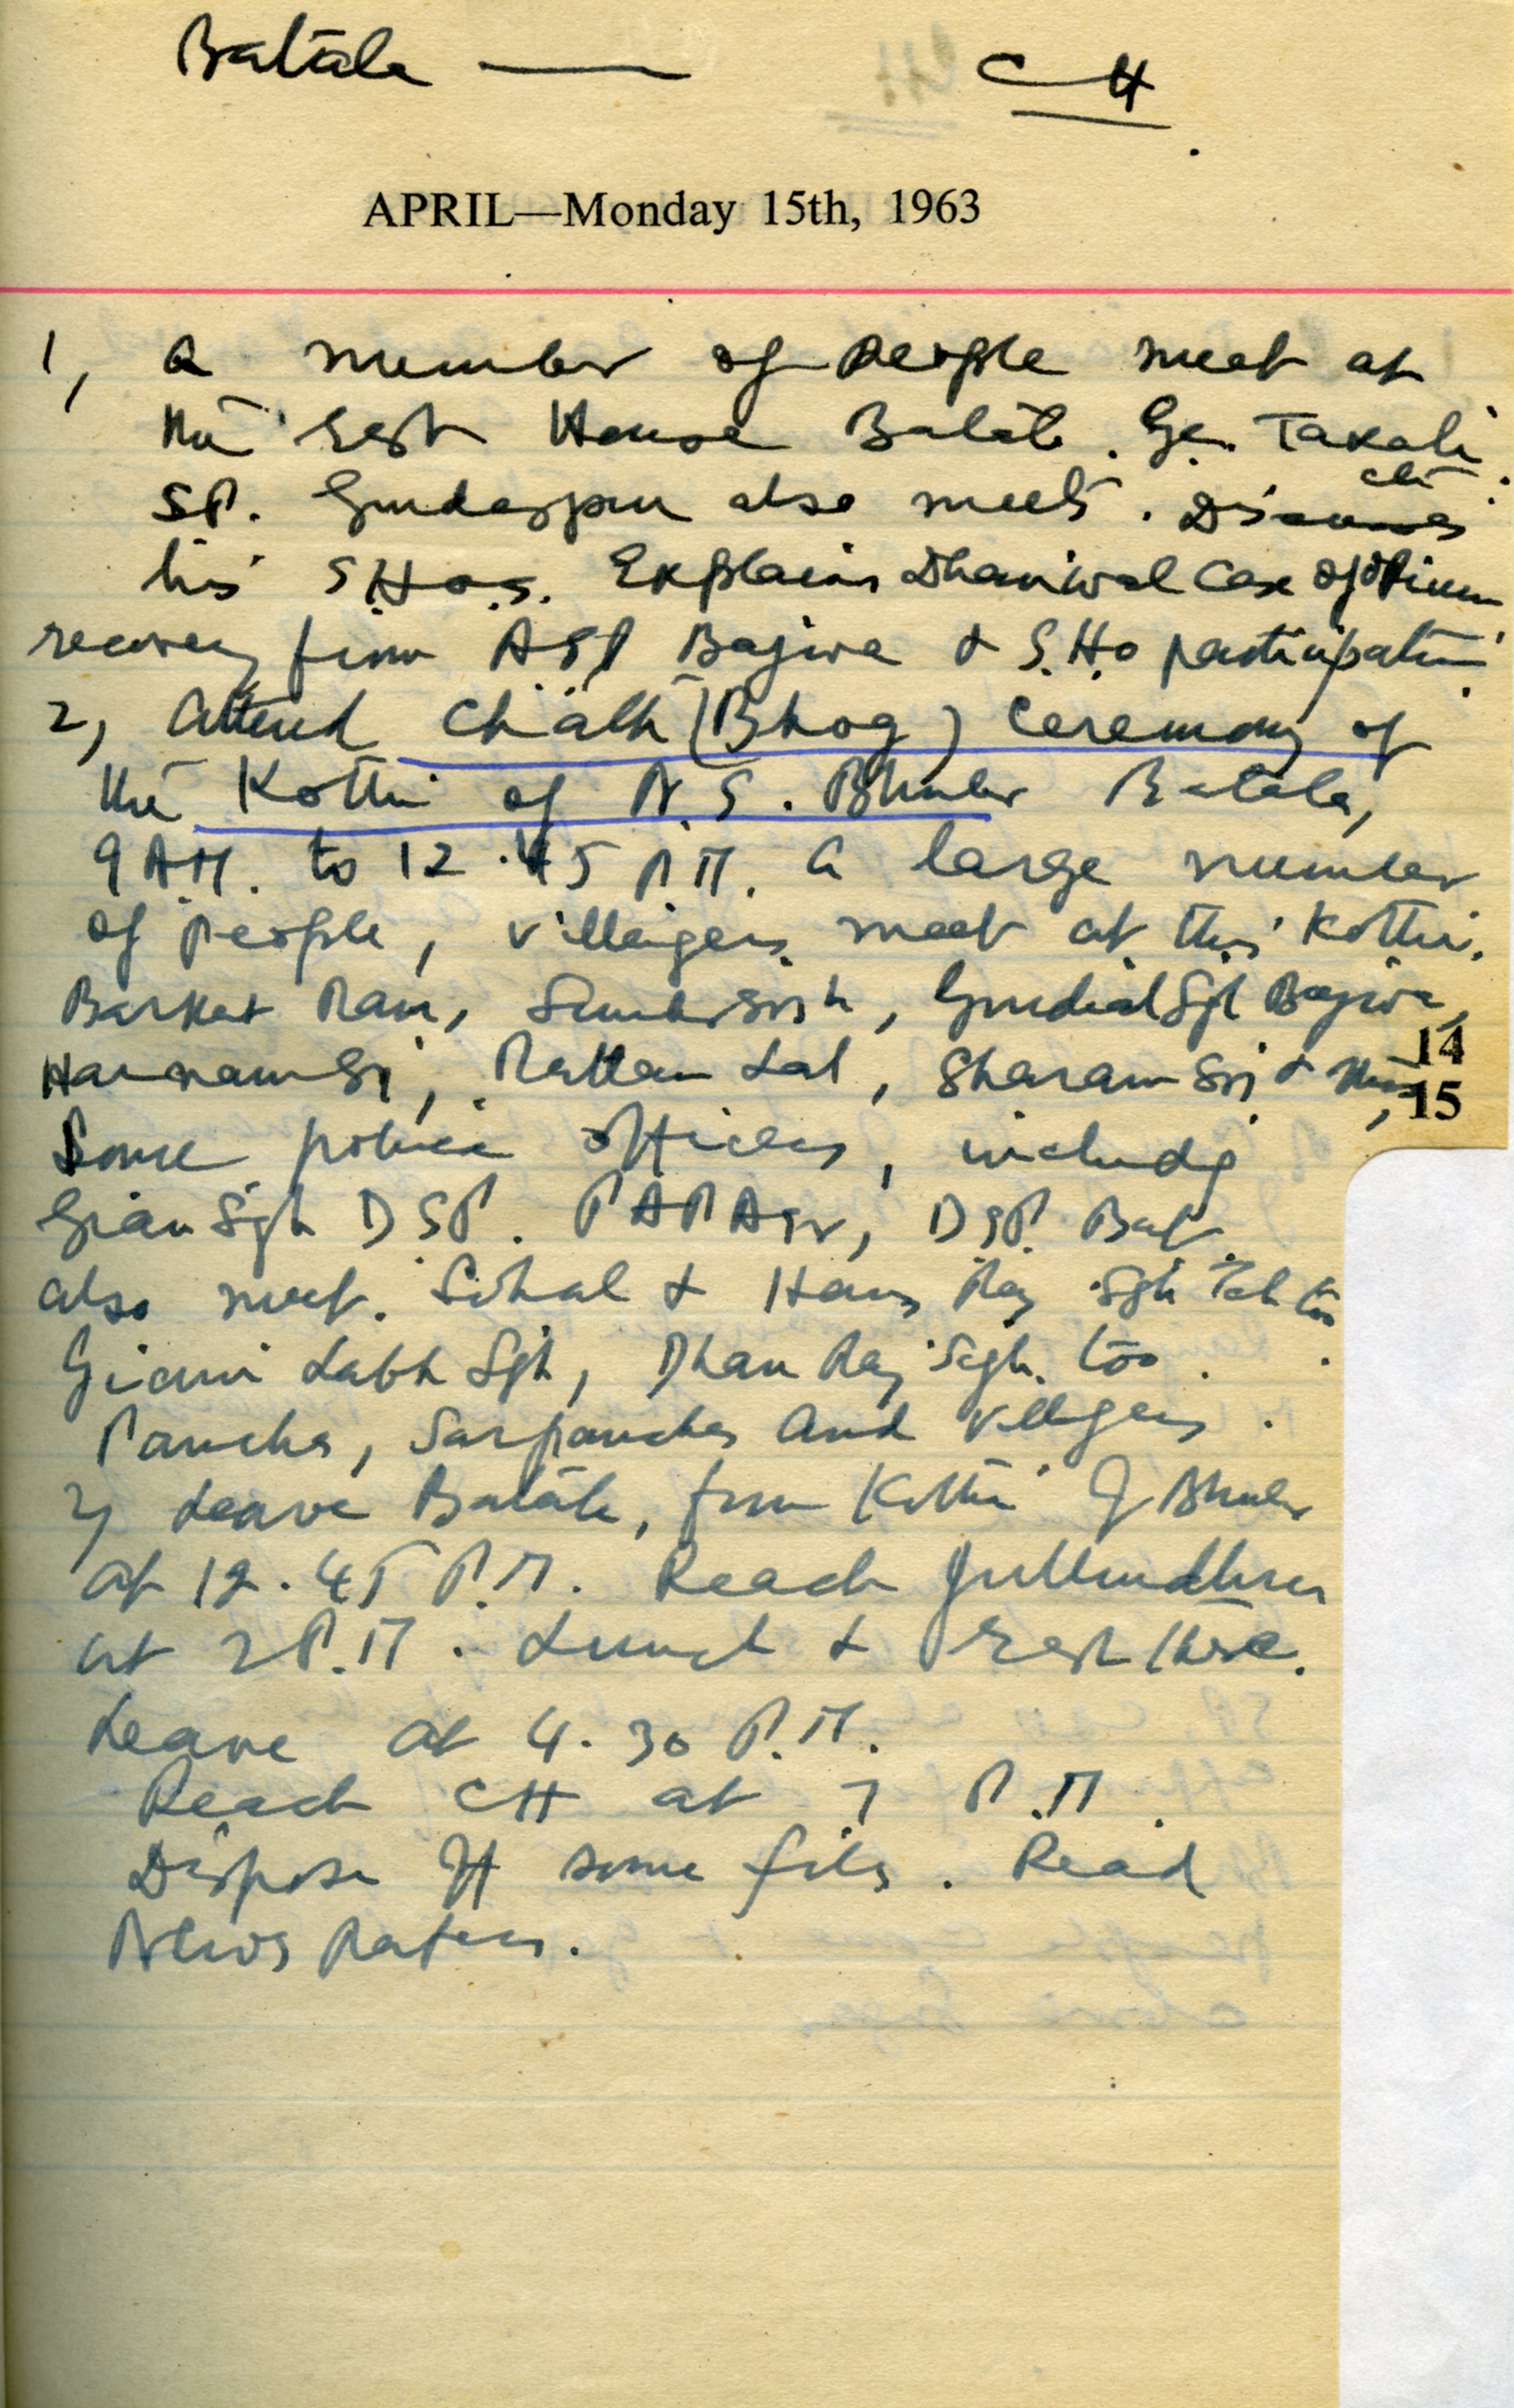 Batala — CH
APRIL—Monday 15th, 1963
1, A number of people meet at
the rest House Batala. Takali
SP. Gurdaspur also meets. Discusses
his S.H.o.s. Explains Dhariwal Case of opium
recovery from ASI Bajwa & S.Ho participation
2, Attend Chalk (Bhog) Ceremony of
the Kothi of N.S. Bhuler Batala,
9 A.M. to 12.45 P.M. A large number
of people, villeigers meet at this Kothi.
Barket Ram, , Gurdial Sgh Bajwa,
Harnam Si, Rattan Lal, Sharam &
14
15
Some police officers, includg
Gian Sgh DSP. PAP Asr, DSP. Bat
also meet. Sihal & Hans Raj Sgh too
Giani Labh Sgh, Dhan Raj Sgh. too.
Panches, Sarpanches and villigers.
3, Leave Batala, from Kothi of Bhuler
at 12.45 P.M. Reach Jullundhur
at 2 P.M. Lunch & rest there.
Leave at 4.30 P.M.
Reach CH at 7 P.M.
Dispose off some files. Read
News Papers.